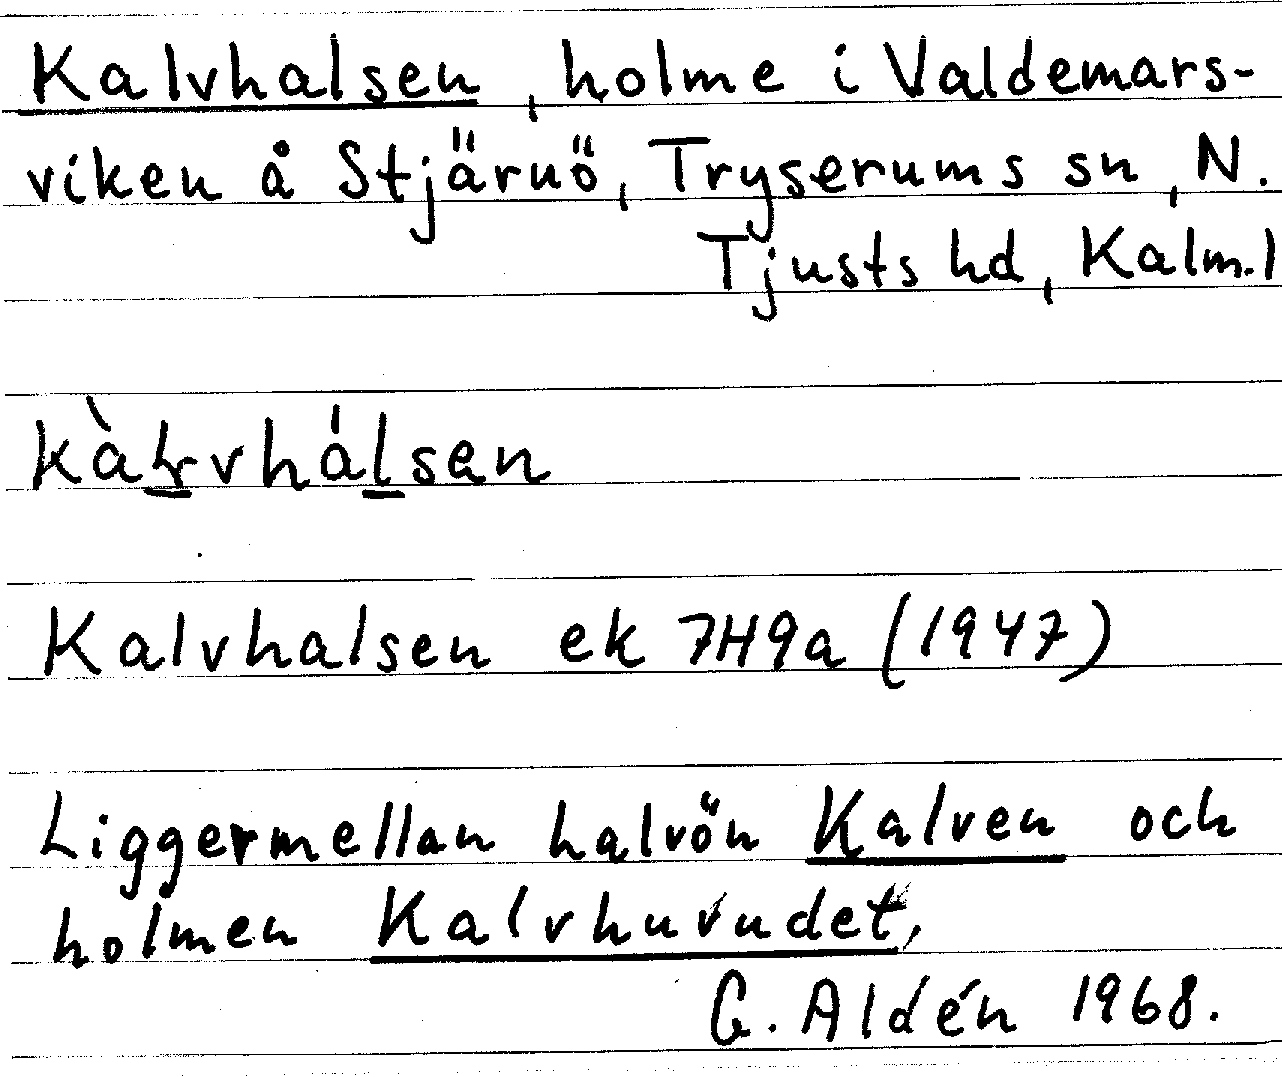 Kalvhalsen, holme i Valdemars-
viken å Stjärnö, Tryserums sn, N.
Tjusts hd, Kalm.l
Kalvhalsen ek 7H9a (1947)
Ligger mellan halvön Kalven och
holmen Kalvhuvudet,
G. Aldén 1968.